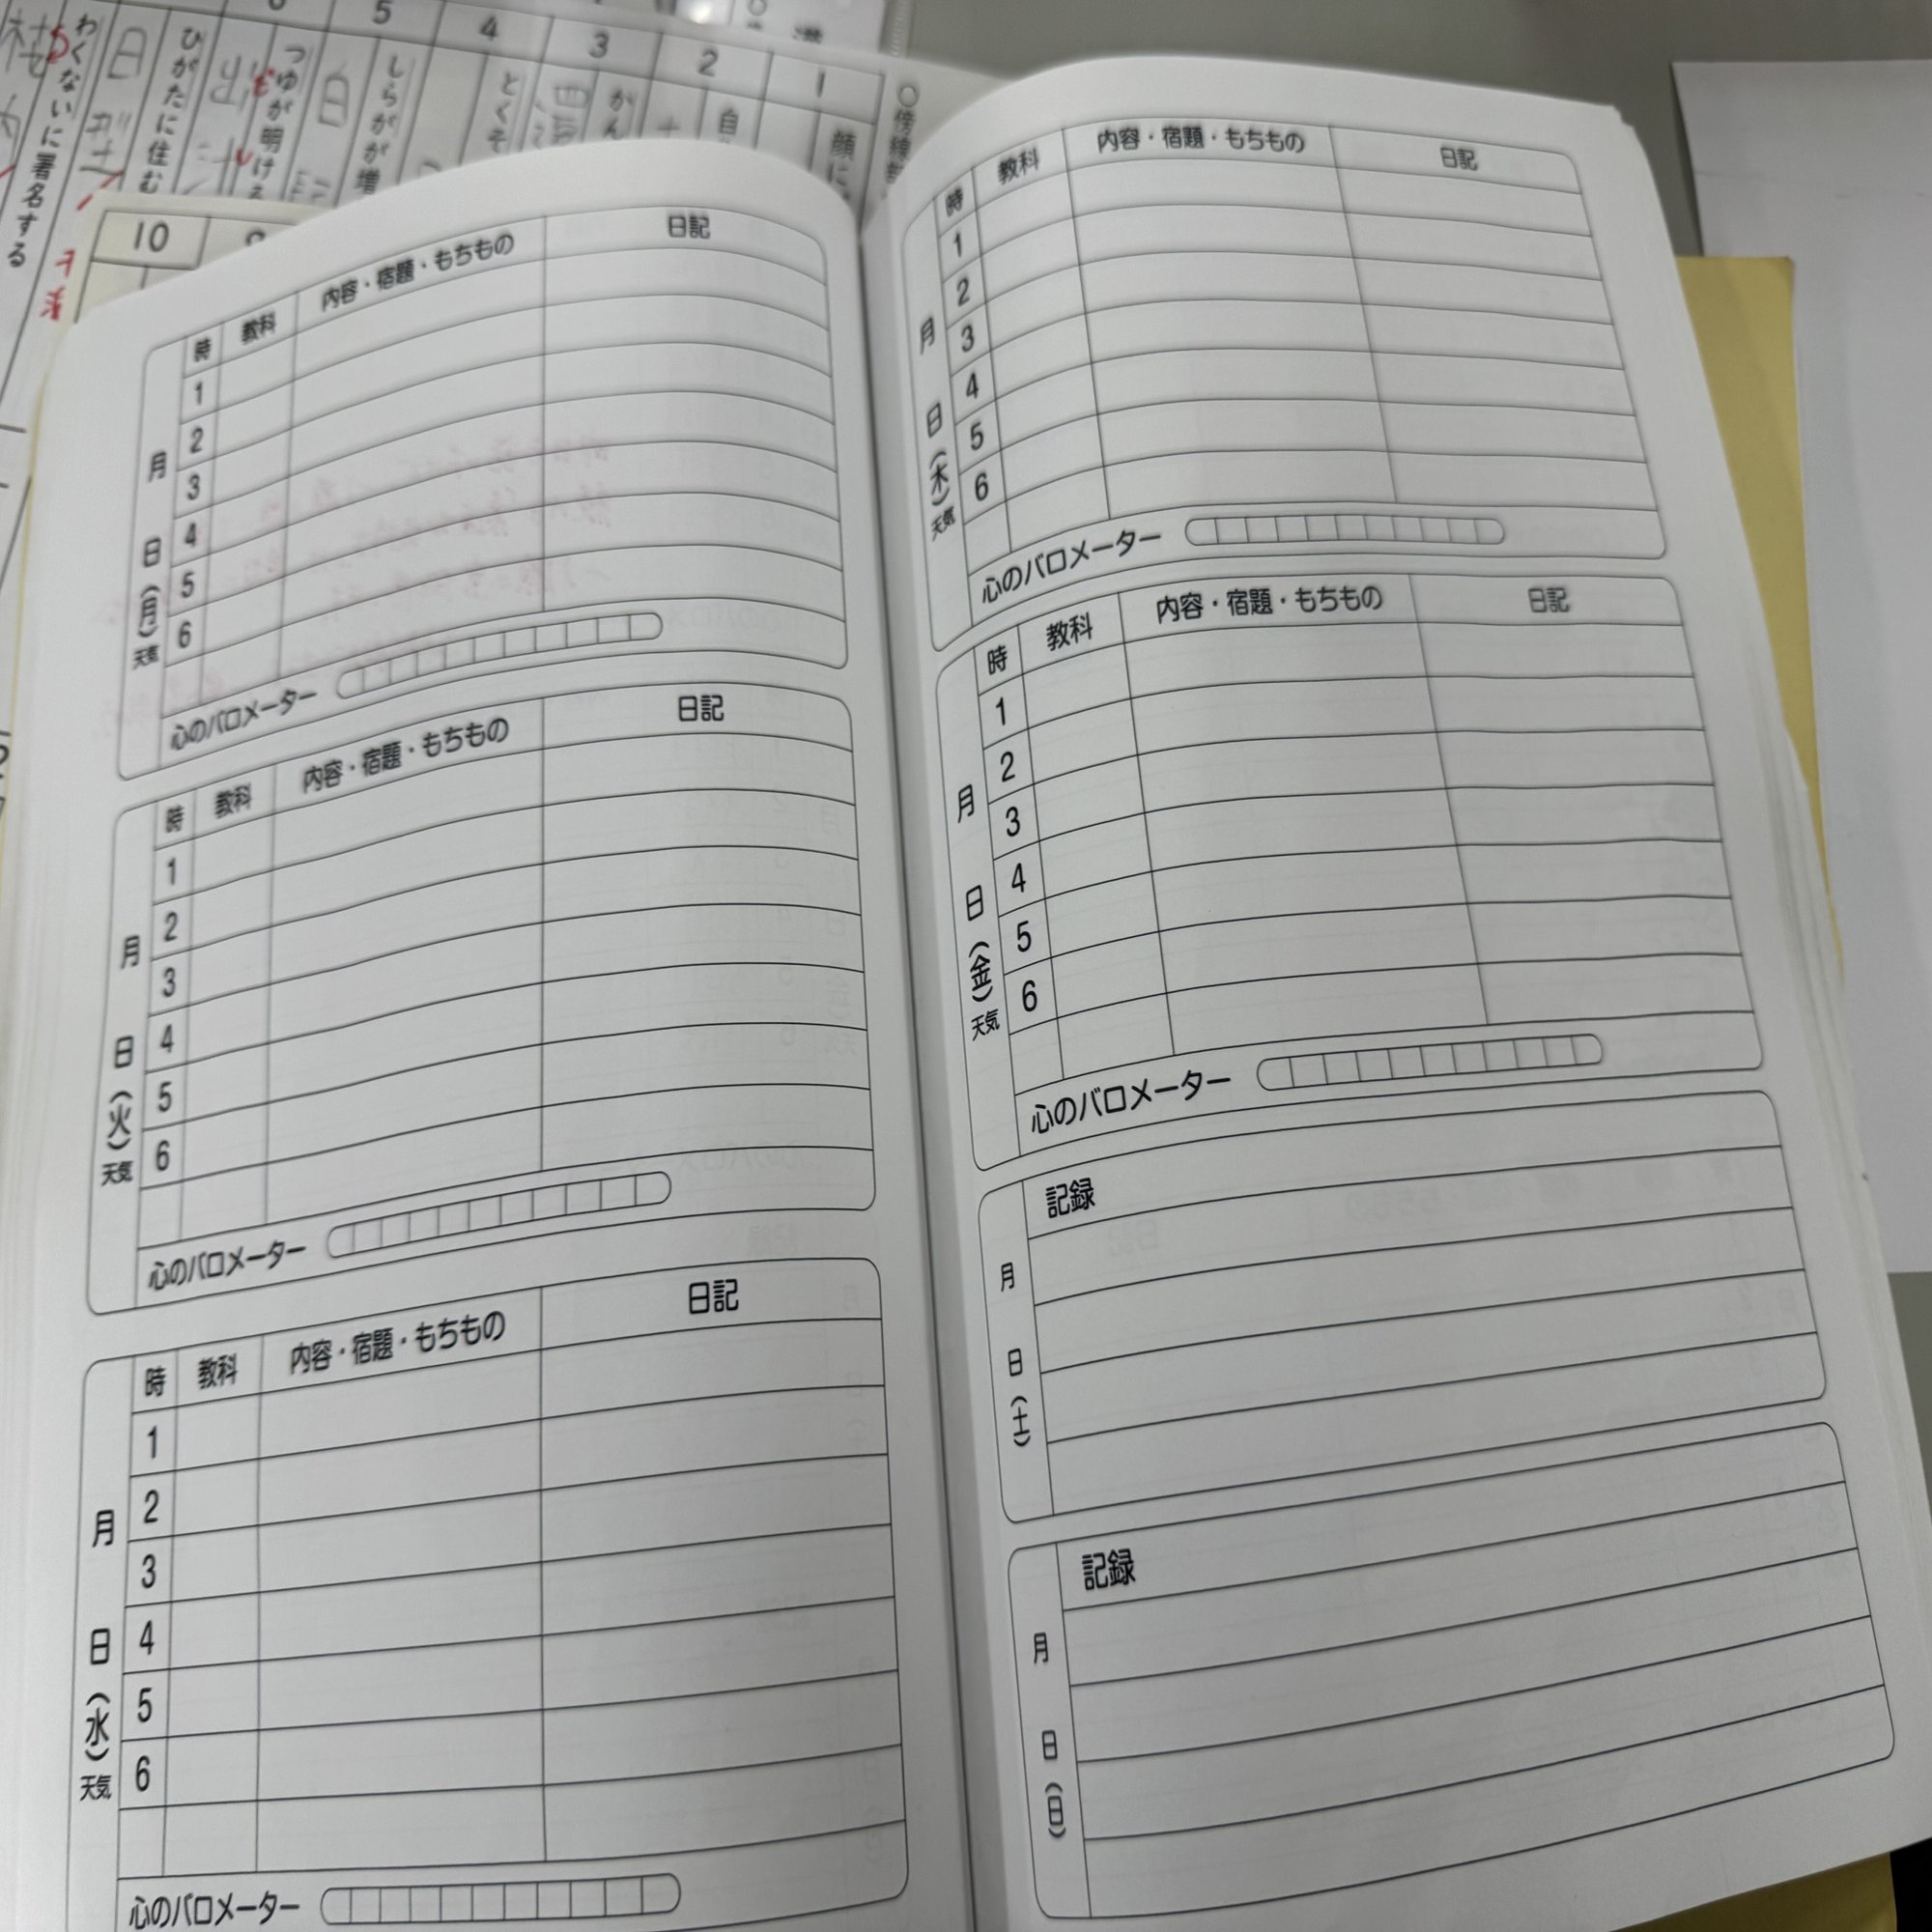 わくないに署名する
ひがたに住む
つゆが明ける
しらがが増
とくそ
がん
自
顔に
○傍線
5
4
3
2
1
10
時 教科 内容・宿題・もちもの 日記
1
2
3
4
5
6
月 日（月）天気
心のバロメーター
時 教科 内容・宿題・もちもの 日記
1
2
3
4
5
6
月 日（火）天気
心のバロメーター
時 教科 内容・宿題・もちもの 日記
1
2
3
4
5
6
月 日（水）天気
心のバロメーター
時 教科 内容・宿題・もちもの 日記
1
2
3
4
5
6
月 日（木）天気
心のバロメーター
時 教科 内容・宿題・もちもの 日記
1
2
3
4
5
6
月 日（金）天気
心のバロメーター
記録
月 日（土）
記録
月 日（日）